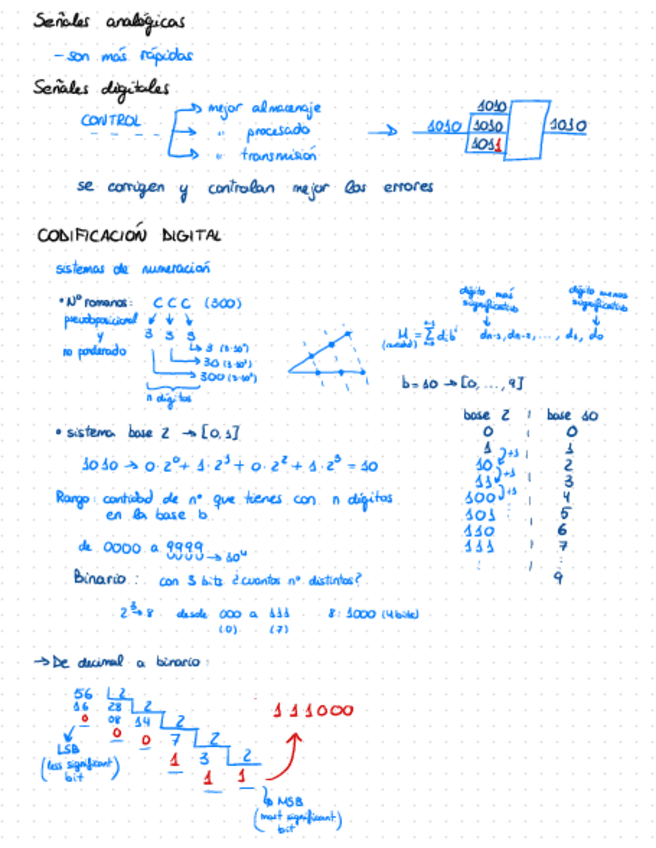 Señales analógicas
- son más rápidas
Señales digitales
CONTROL
mejor almacenaje
" procesado
" transmisión
1010
1010 1010 1010
1011
se corrigen y controlan mejor los errores
CODIFICACIÓN DIGITAL
sistemas de numeración
• Nº romanos: C C C (300)
pseudoposicional
y
no ponderado
3 3 3
3 (3·10⁰)
30 (3·10¹)
300 (3·10²)
n dígitos
dígito más significativo
dígito menos significativo
dn-1, dn-2, ..., d1, d0
b = 10 → [0, ..., 9]
• sistema base 2 → [0,1]
1010 → 0·2⁰ + 1·2¹ + 0·2² + 1·2³ = 10
Rango: cantidad de nº que tienes con n dígitos
en la base b
de 0000 a 9999 → 10⁴
Binario: con 3 bits ¿cuantos nº distintos?
2³ → 8 desde 000 a 111 8: 1000 (4 bits)
(0) (7)
base 2 | base 10
0 0
1 1
10 2
11 3
100 4
101 5
110 6
111 7
: :
9
+1
+1
+1
→ De decimal a binario:
56 2
16 28 2
0 08 14 2
0 0 7 2
1 3 2
1 1
111000
LSB
(less significant
bit)
MSB
(most significant
bit)